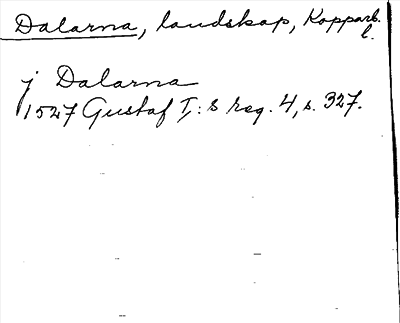 Dalarna, landskap, Kopparb.
l.
j Dalarna
1527 Gustaf I:s reg. 4, s. 327.